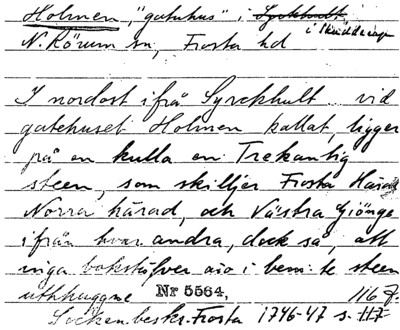 Holmen, "gatuhus" i Syrkhult,
i Skeidderup
N. Rörum sn, Frosta hd
I nordost ifrå Syrckhult vid
gatehuset Holmen kallat, ligger
på en kulla en Trekantig
steen, som skilljer Frosta Härad
Norra härad, och Västra Giönge
ifrån hvar andra, dock så, att
inga bokstäfver äro i bem:te steen
uthhuggne Nr 5564, 116 f.
Sockenbeskr. Frosta 1746-47 s. 117